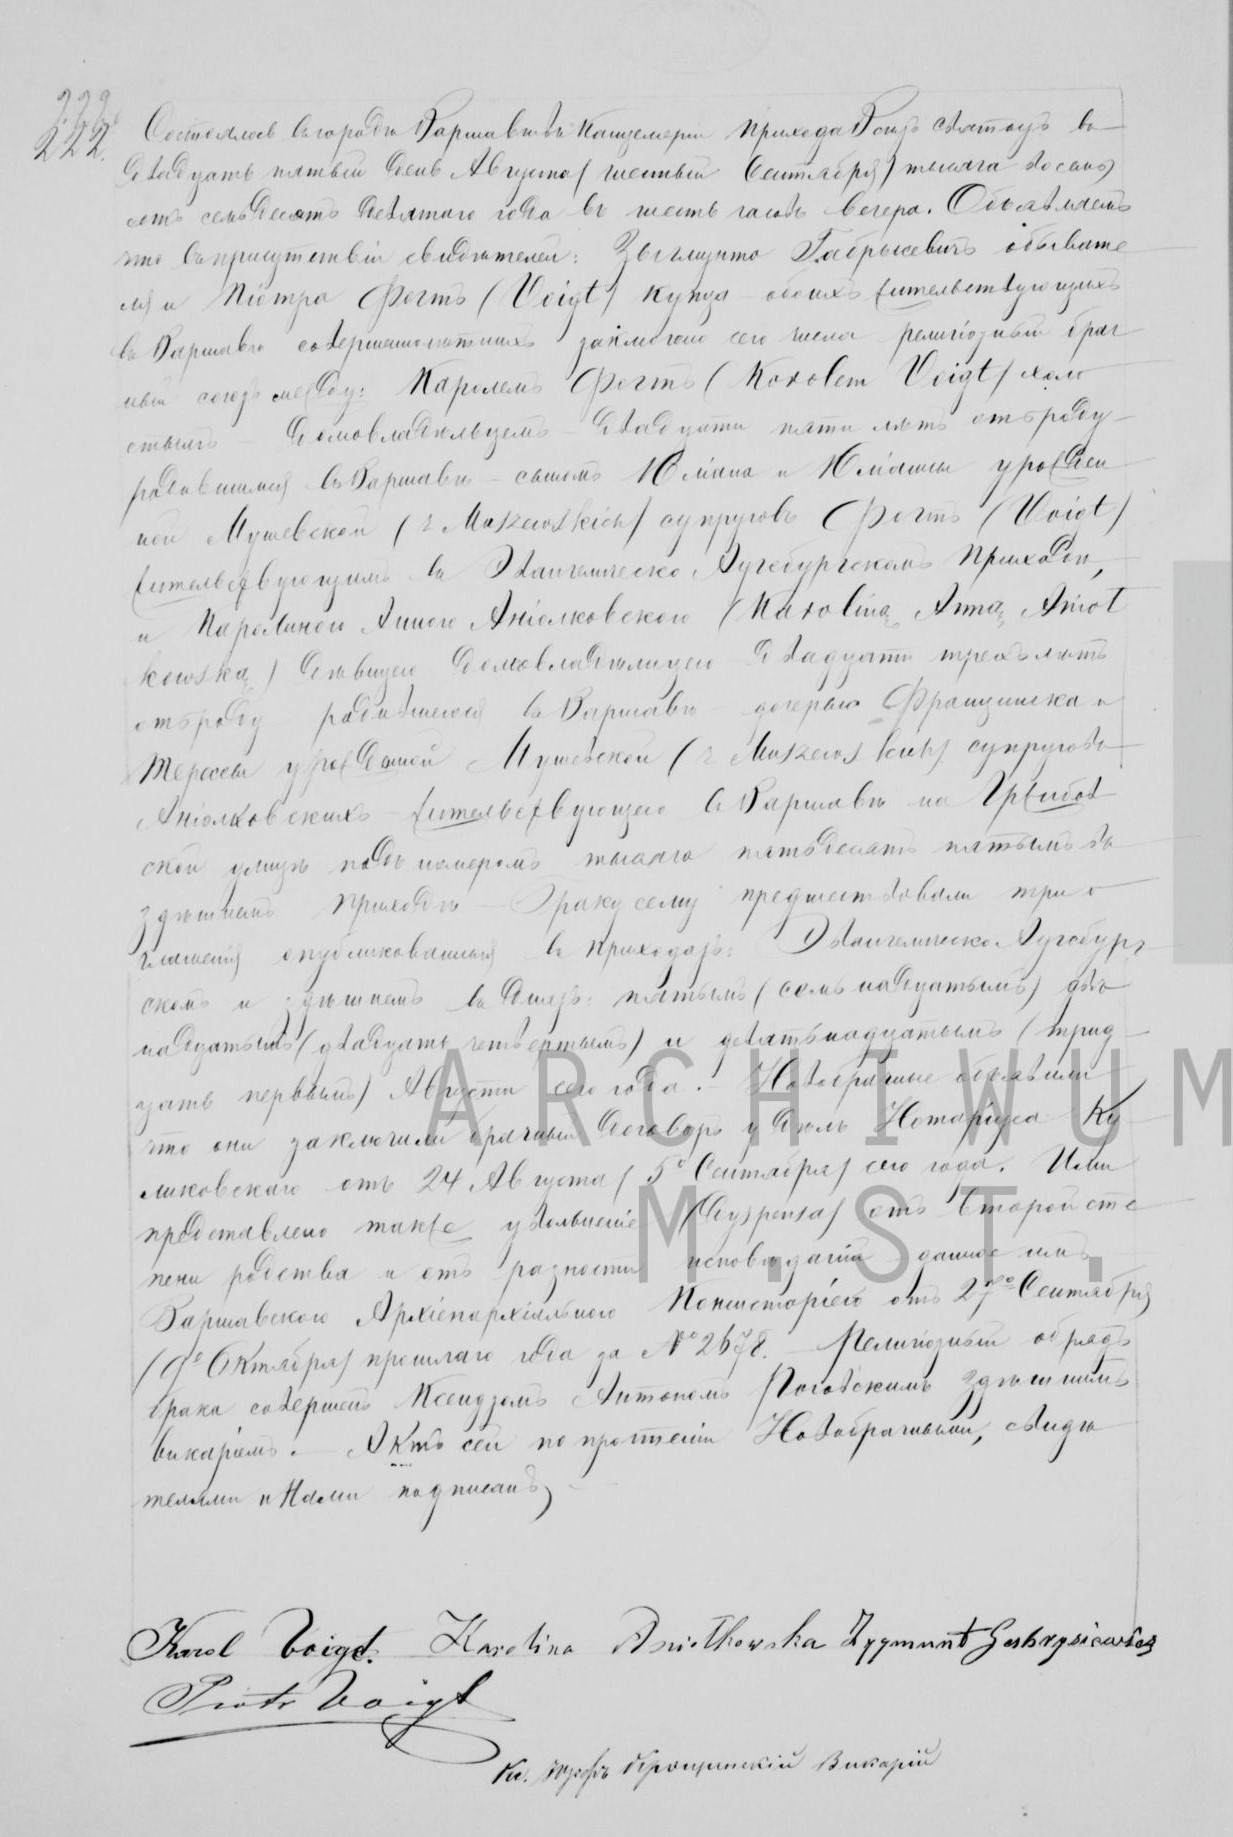 222
222.
Состоялось въ городѣ Варшавѣ въ Канцеляріи Прихода Всѣхъ Святыхъ въ
двадцать пятый день Августа / шестый Сентября / тысяча восемь
сотъ семьдесятъ девятаго года въ шесть часовъ вечера. Объявляемъ
что въ присутствіи свидѣтелей: Зыгмунта Габрысевичъ обывате
ля и Піотра Фогтъ (Voigt) купца обоихъ жительствующихъ
въ Варшавѣ совершеннолѣтнихъ заключено сего числа религіозный брач
ный союзъ между: Каролемъ Фогтъ (Karolem Voigt) холо
стымъ – домовладѣльцемъ – двадцати пяти лѣтъ отъ роду
родившимся въ Варшавѣ – сыномъ Юліана и Юліанны урожден
ной Мушевской (z Muszewskich) супруговъ Фогтъ (Voigt)
жительствующимъ въ Эвангелическо Аугсбургскомъ Приходѣ,
и Каролиною Анною Аніолковскою (Karoliną Anną Anioł
kowską) дѣвицею домовладѣлицею двадцати трехъ лѣтъ
отъ роду родившеюся въ Варшавѣ – дочерью Францишка и
Терессы урожденной Мушевской (z Muszewskich) супруговъ
Аніолковскихъ – жительствующею въ Варшавѣ на Гржибов
ской улицѣ подъ номеромъ тысяча пятьдесятъ пятымъ въ
здѣшнемъ Приходѣ – Браку сему предшествовали три о
глашенія опубликованныя въ приходахъ: Эвангелическо Аугсбург
скомъ и здѣшнемъ въ дняхъ: пятымъ (семьнадцатымъ) двѣ
надцатымъ (двадцать четвертымъ) и девятьнадцатымъ (трид
цать первымъ) Августа сего года. – Новобрачные объявили
что они заключили брачный договоръ у дѣлъ Нотаріуса Ку
ликовскаго отъ 24 Августа / 5го Сентября / сего года. Ими
представлено также увольненіе (Dyspensa) отъ второй сте
пени родства и отъ разности исповѣданія данное имъ
Варшавскою Архіепархіяльною Консисторіею отъ 27го Сентября
(9го Октября) прошлаго года за № 2678. – Религіозный обрядъ
брака совершенъ Ксендзомъ Антономъ Роговскимъ здѣшнимъ
викаріемъ. – Актъ сей по прочтеніи Новобрачными, свидѣ
телями и Нами подписанъ
Karol Voigt. Karolina Aniołkowska Zygmunt Gabrysiewicz
Piotr Voigt
Кс. Юзефъ Викарій
ARCHIWUM
M.ST.